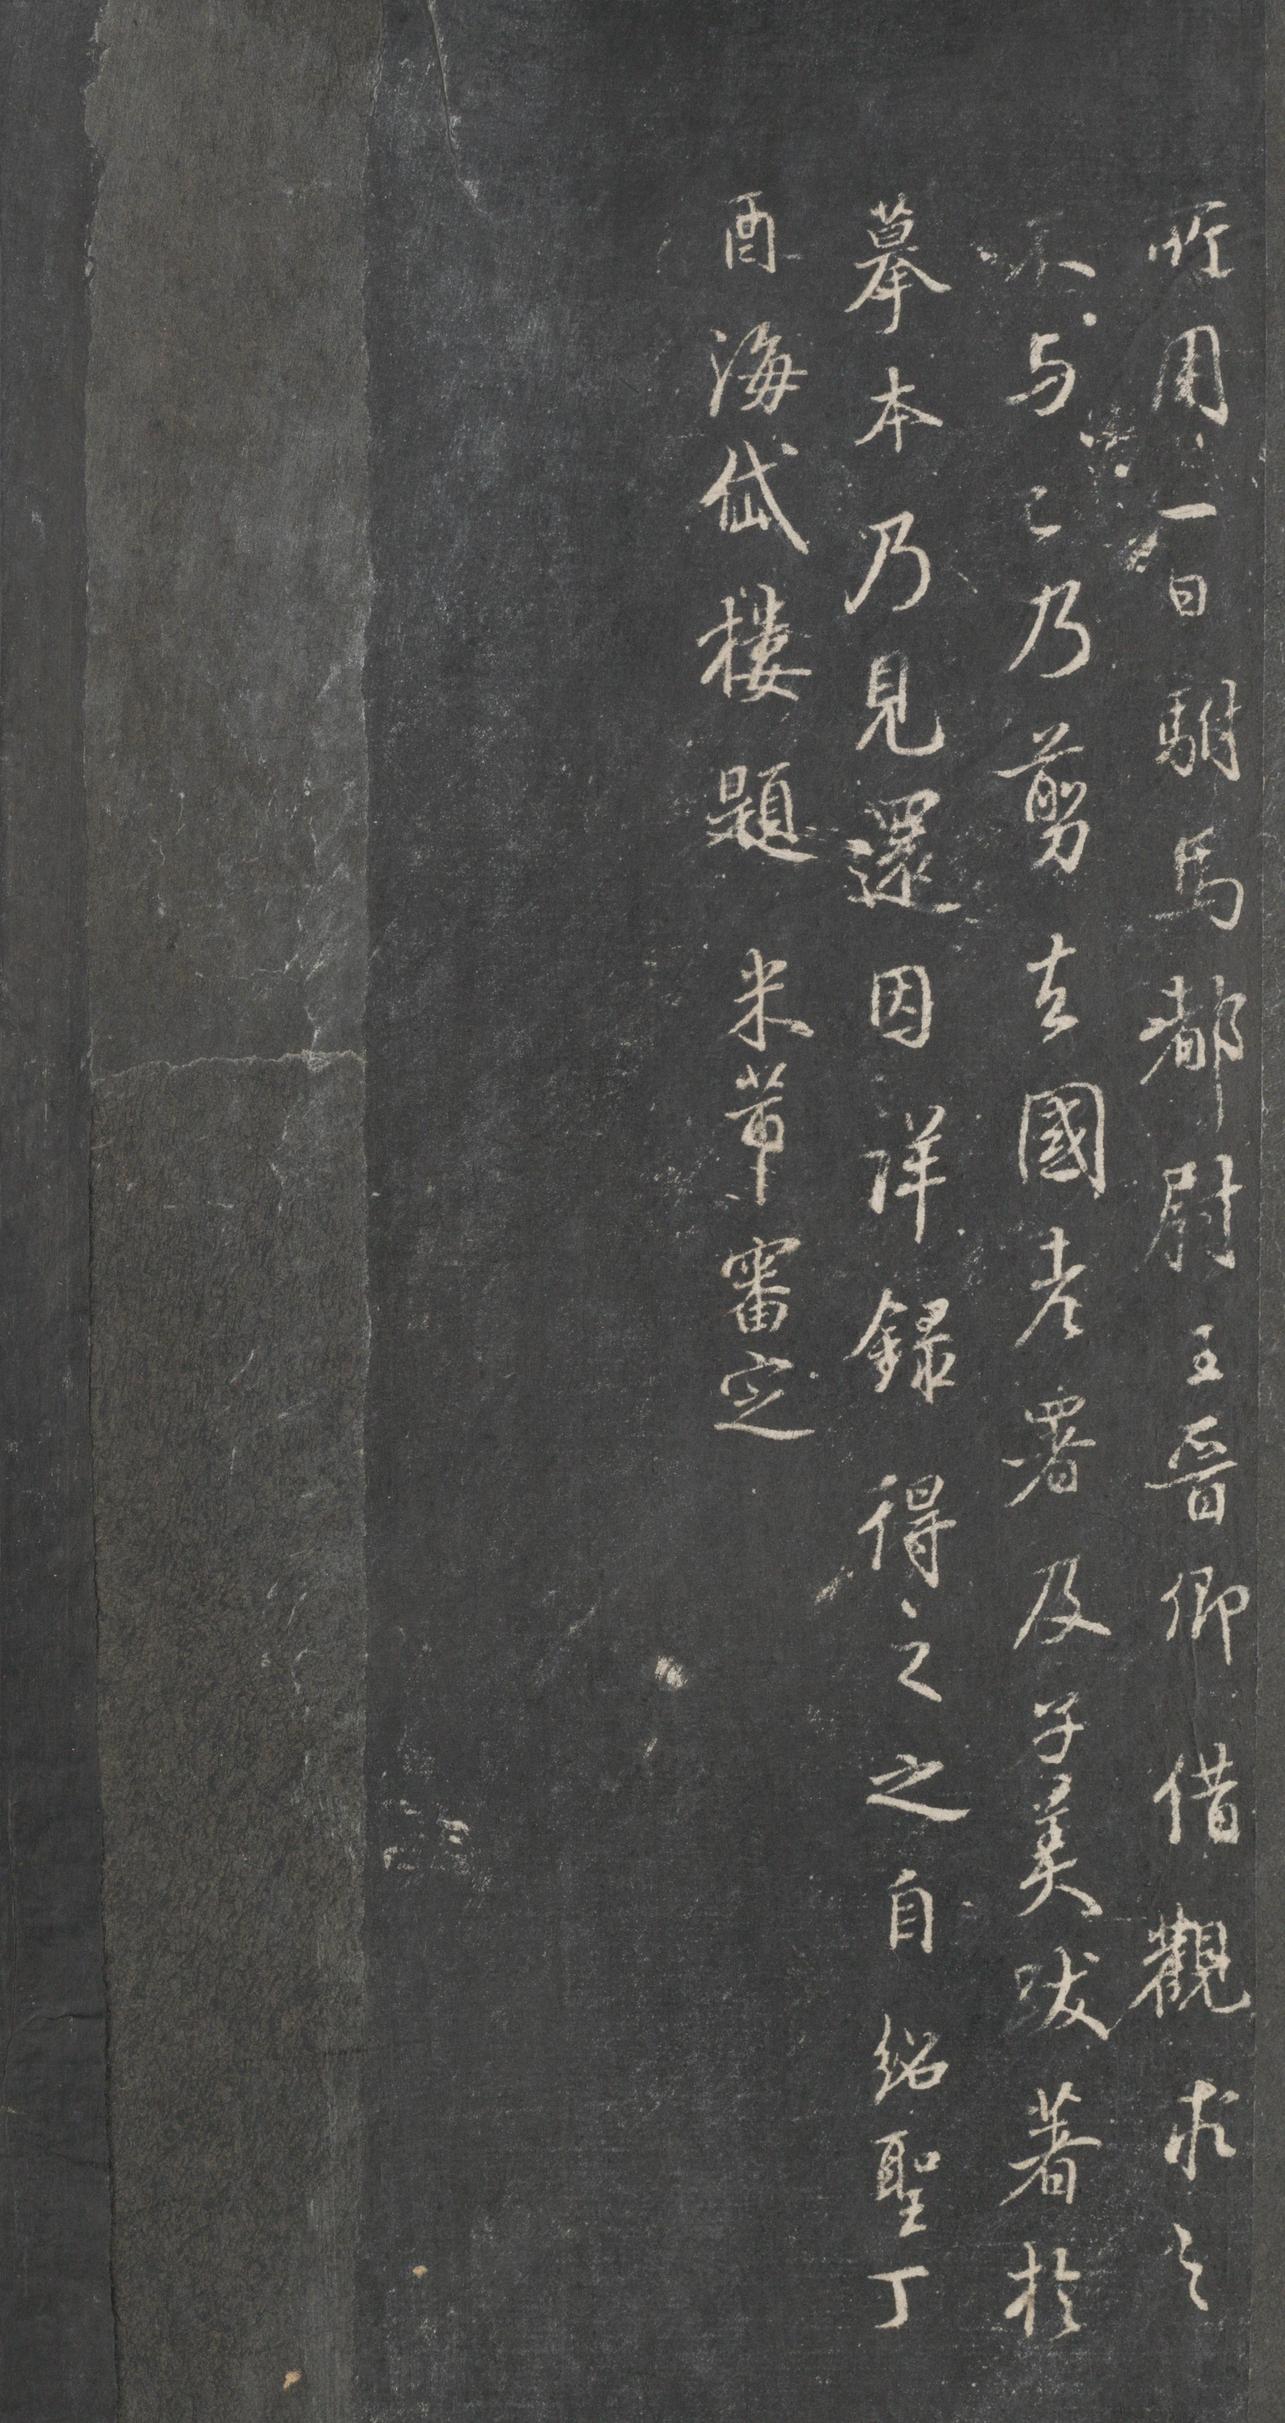 所用一日駙馬都尉王晉卿借觀求之
不与已乃剪去國老署及子美跋著於
摹本乃見還因詳録得之之自紹聖丁
酉海岱樓題米芾審定